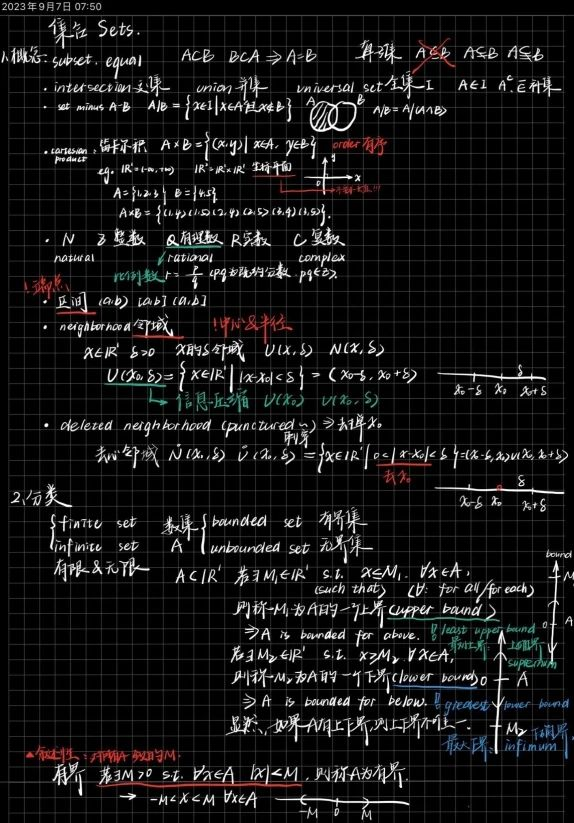 2023年9月7日 07:50
集合 Sets.
1.概念: subset. equal A⊂B B⊂A ⇒ A=B 真子集 A⊆B A⊊B A⫋B
· intersection交集 union并集 universal set全集 I A∈I Aᶜ. 补集
· set minus A-B A/B = {x∈I | x∈A 但 x∉B} A B A/B = A/(A∩B)
· cartesian product: 笛卡尔积 A×B = {(x,y) | x∈A, y∈B} order有序
eg. ℝ¹=(-∞,+∞) ℝ²=ℝ¹×ℝ¹ 坐标平面 y x 0
A={1,2,3} B={4,5}
A×B = {(1,4)(1,5)(2,4)(2,5)(3,4)(3,5)}.
· N Z整数 Q有理数 R实数 C复数
natural rational complex
比例数 r = p/q (p,q为既约分数. p,q∈Z).
!端点
· 区间 (a,b) [a,b] (a,b]
· neighborhood邻域 !中心&半径
x∈ℝ¹ δ>0 x的δ邻域 U(x,δ) N(x,δ)
U(x₀,δ) = {x∈ℝ¹ | |x-x₀|<δ} = (x₀-δ, x₀+δ) δ x₀-δ x₀ x₀+δ
信息压缩 U(x₀) U(x,δ)
· deleted neighborhood (punctured~) ⇒ 去掉x₀
刺穿
去心邻域 N̊(x₀,δ) Ů(x₀,δ) = {x∈ℝ¹ | 0<|x-x₀|<δ} = (x₀-δ,x₀)∪(x₀,x₀+δ)
去x₀ δ x₀-δ x₀ x₀+δ
2.分类
{finite set 数集 {bounded set 有界集
infinite set A unbounded set 无界集 bound
有限&无限 A⊂ℝ¹ 若∃M₁∈ℝ¹ s.t. x≤M₁. ∀x∈A, M
(such that) (∀: for all/for each)
则称M₁为A的一个上界(upper bound) 0 A
⇒A is bounded for above. ! least upper bound
最小上界: 上确界
若∃M₂∈ℝ¹ s.t. x≥M₂. ∀x∈A, supremum
则称M₂为A的一个下界(lower bound) 0 A
⇒ A is bounded for below. ! greatest lower bound
显然, 如果A有上下界, 则上下界不唯一. M₂ 下确界
最大下界: infimum
▲ M.
有界 若∃M>0 s.t. ∀x∈A |x|<M, 则称A为有界.
→ -M<x<M ∀x∈A -M 0 M